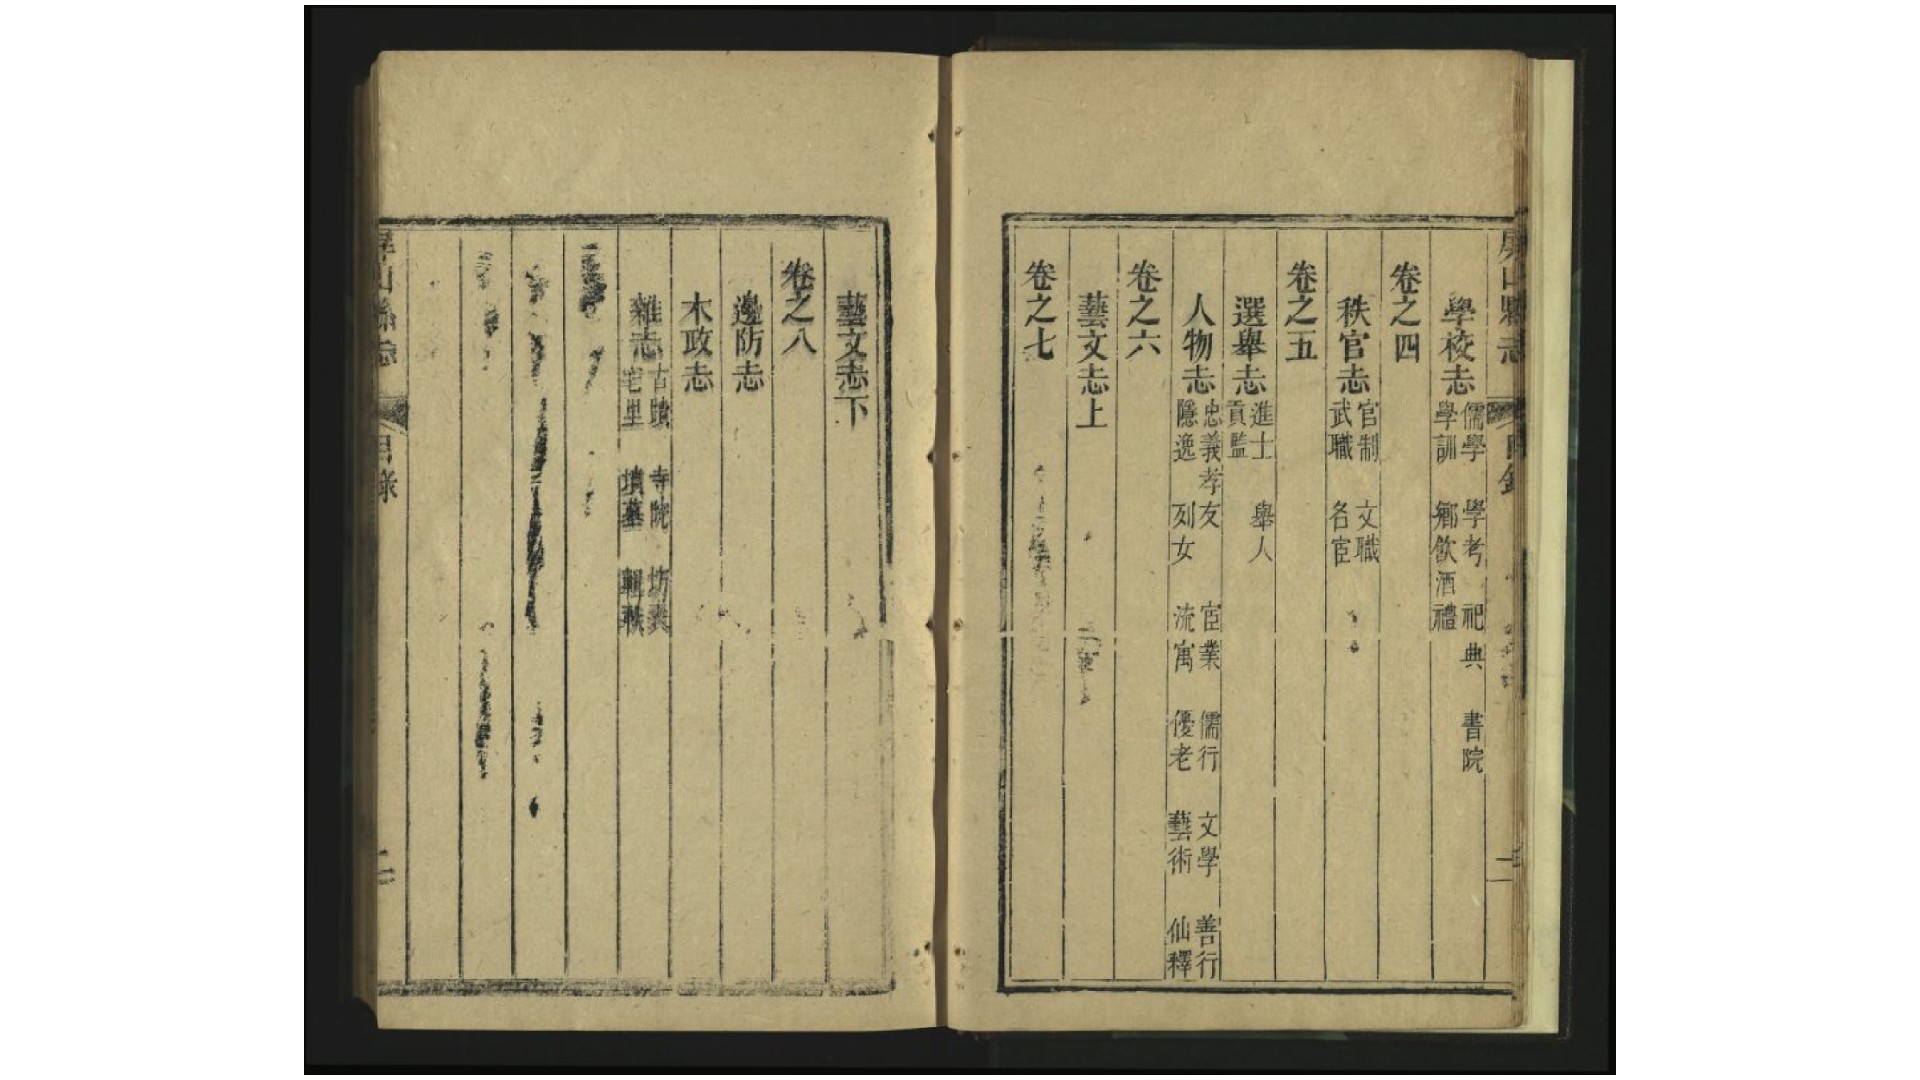 屏山縣志
目錄
二
學校志
儒學 學考 祀典 書院
學訓 鄉飲酒禮
卷之四
秩官志
官制 文職
武職 名宦
卷之五
選舉志
進士 舉人
貢監
人物志
忠義孝友 宦業 儒行 文學 善行
隱逸 列女 流寓 優老 藝術 仙釋
卷之六
藝文志上
卷之七
藝文志下
卷之八
邊防志
木政志
雜志
古蹟 寺院 坊表
宅里 墳墓 軼
屏山縣志
目錄
二